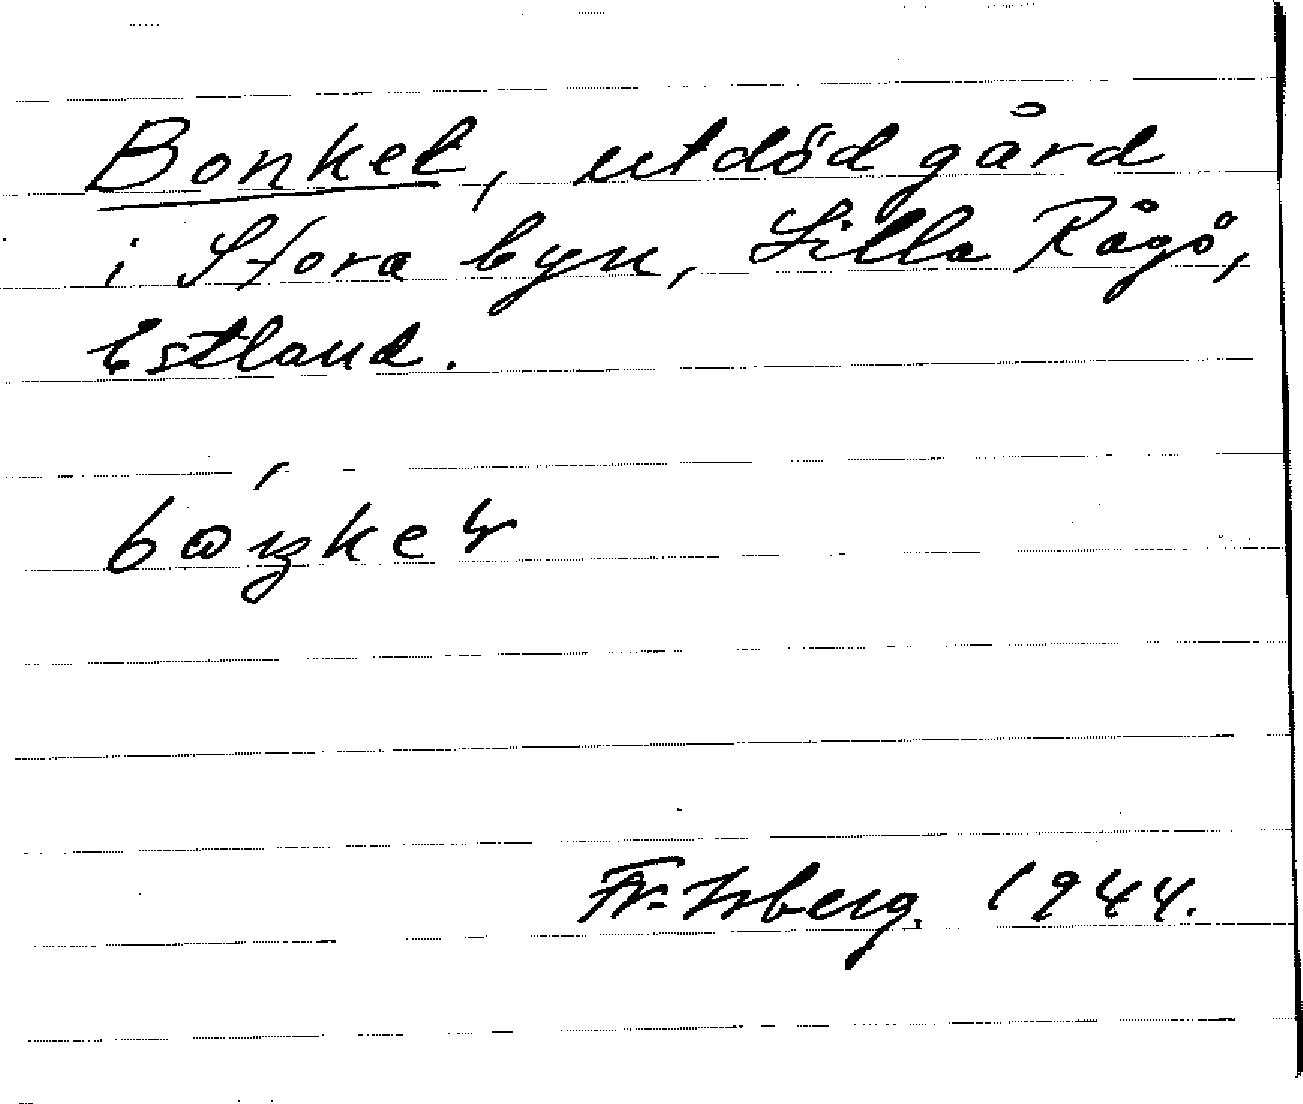 Bonkel, utdöd gård
i Stora byn, Lilla Rågö,
Estland.
Fr. Isberg. 1944.